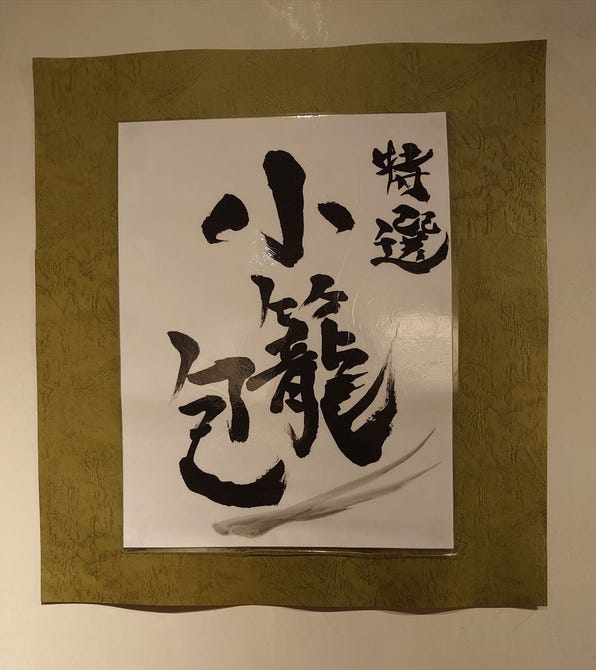 特選
小籠包